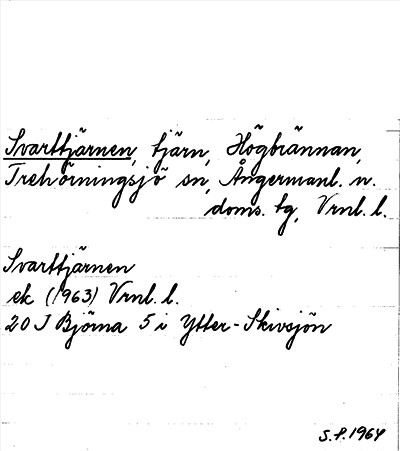 Svarttjärnen, tjärn, Högbrännan,
Trehörningsjö sn, Ångermanl. n.
doms. tg, Vrnl. l.
Svarttjärnen
ek (1963) Vrnl. l.
20 J Björna 5 i Ytter-Skivsjön
S.P. 1964